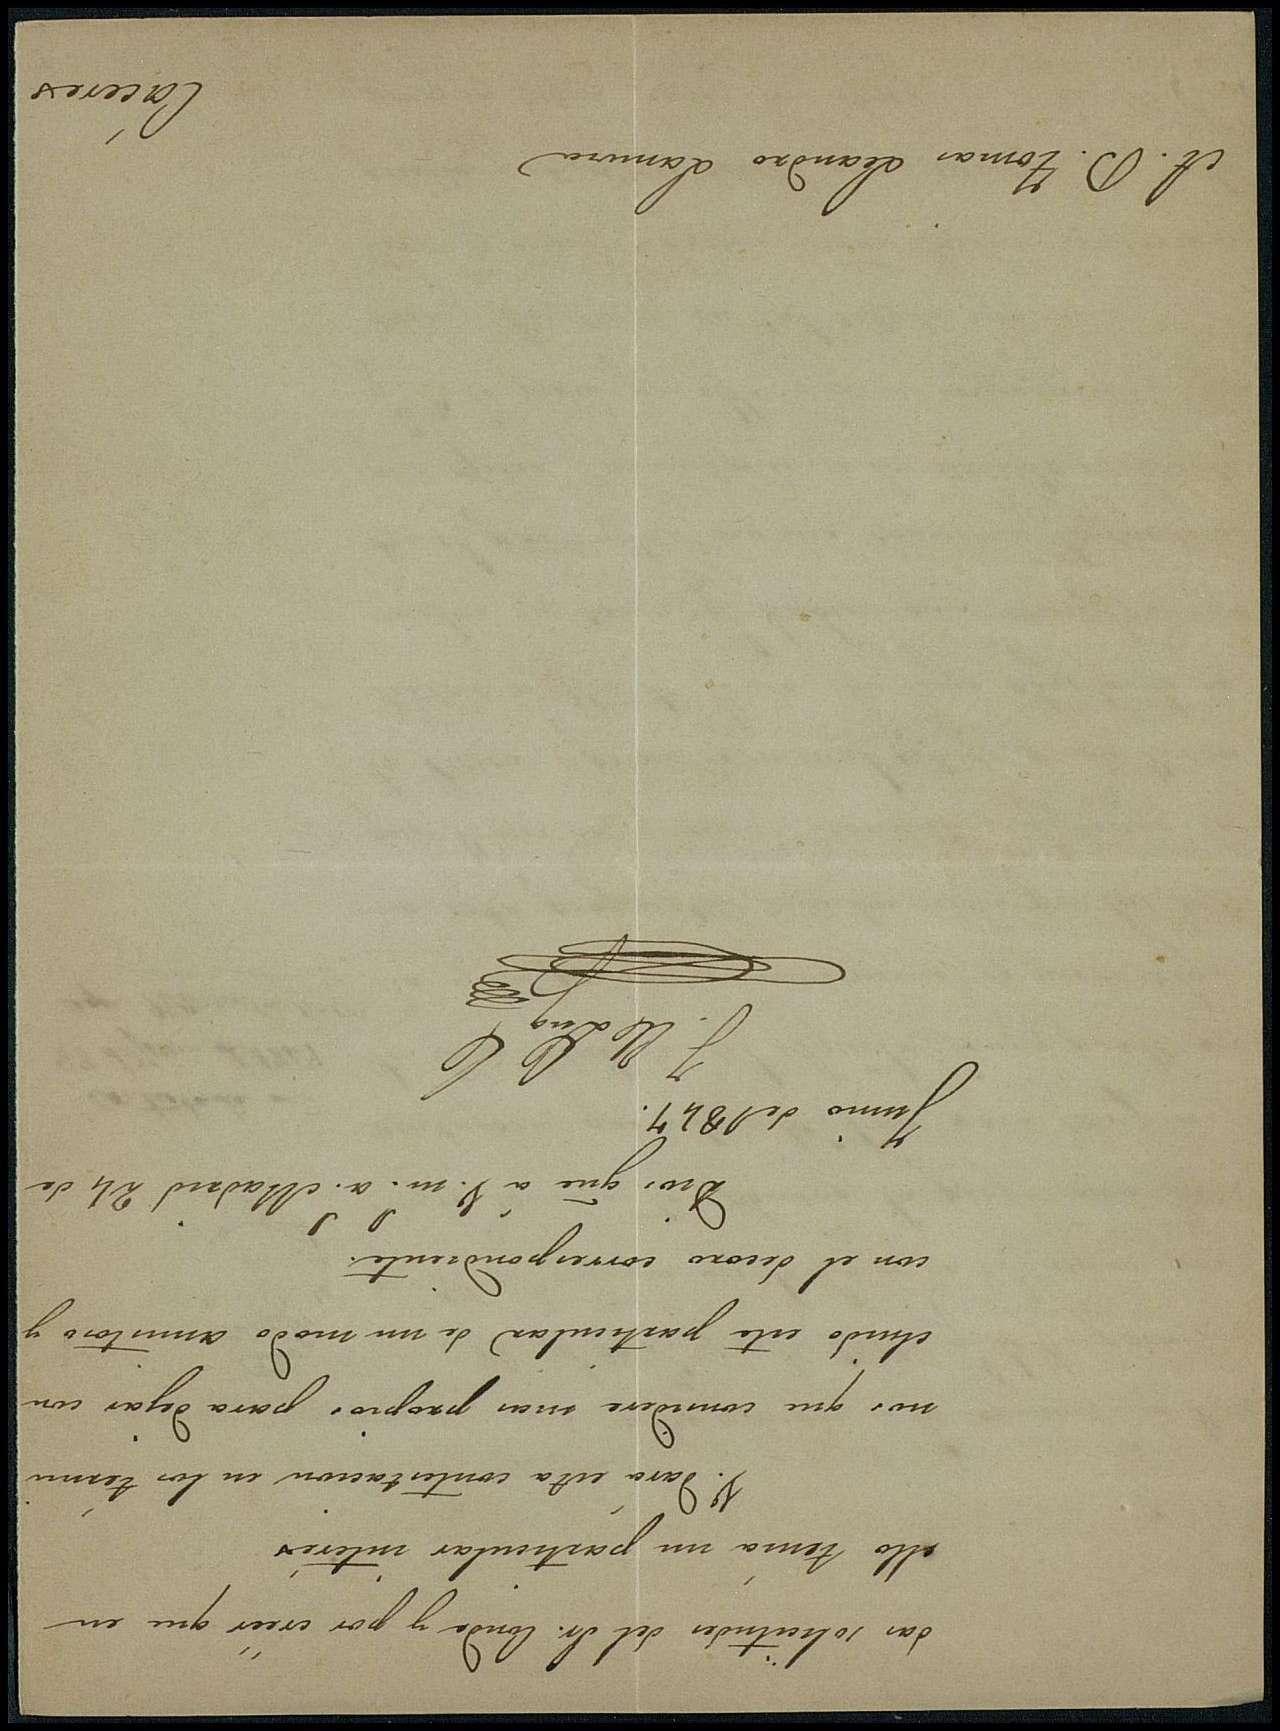 das solicitudes del Sr. Conde y por creer que en
ello tenia un particular interés
V. dará esta contestacion en los térmi
nos que considere mas propios para dejar con
cluido este particular de un modo amistoso y
con el decoro correspondiente.
Dios gũe á V. m. a. Madrid 24 de
Junio de 1847.
A. D. Tomas Leandro
Cáceres